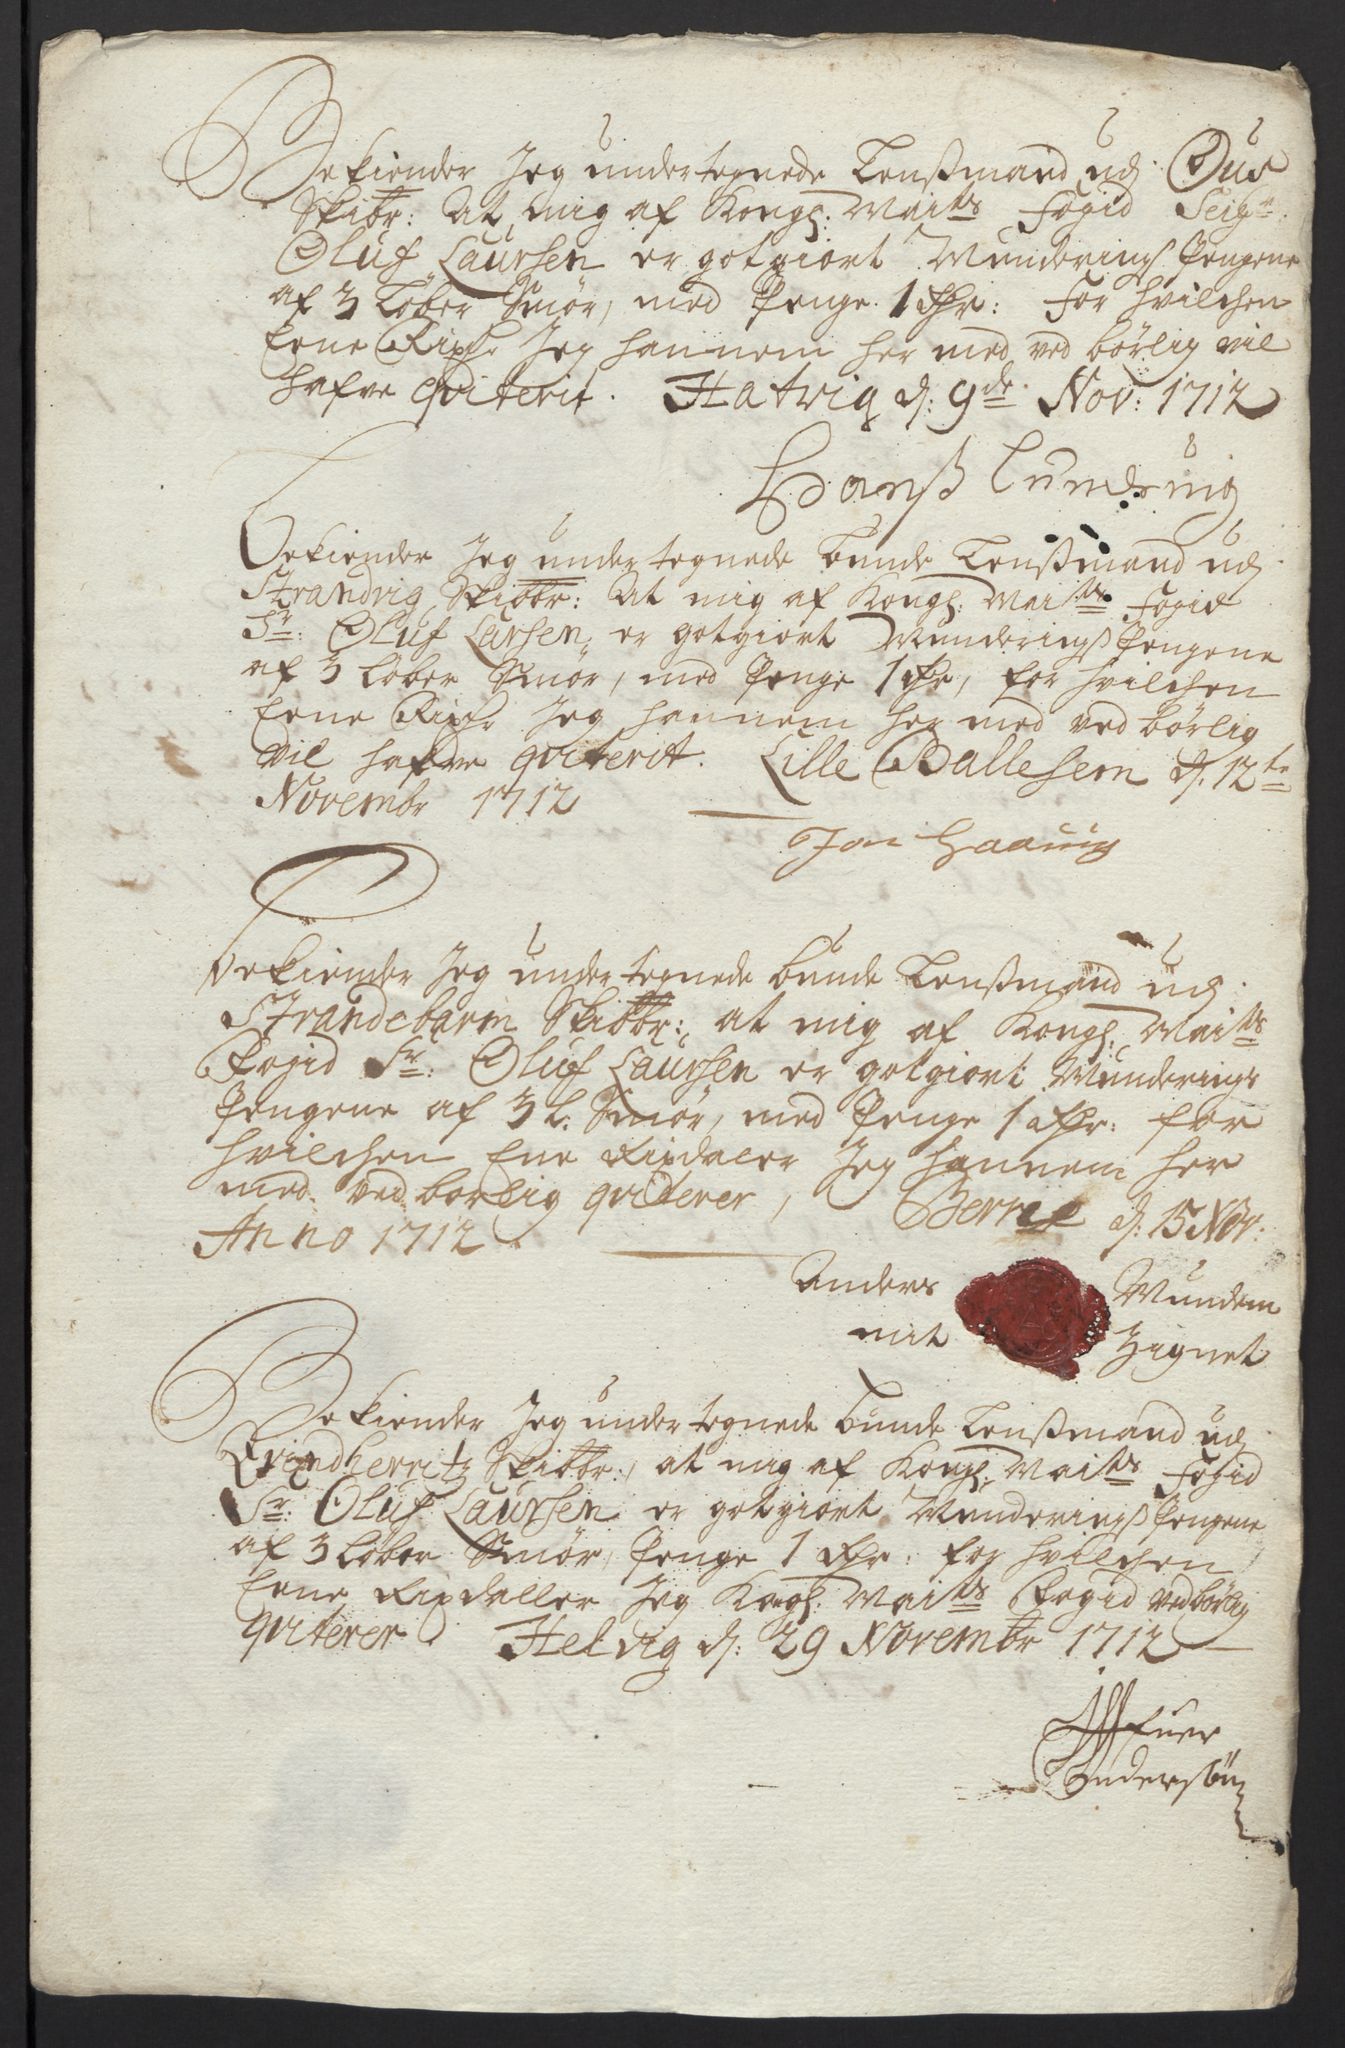 Bekiender Jeg undertegnede Lensßmand udj Ous
Skibr: At mig af Kongl: Maits fogid Seigr
Oluf Laursen er gotgiort Munderings Pengene
af 3 Løber Smør, med Penge 1 Rdr: for hvilchen
Eene Rixdr Jeg hannem her med ved børlig vil
hafve qviterit. Hatvig d: 9de Nov: 1712
Hanß Lundvig
Bekiender Jeg undertegnede bunde Lensßmand udj
Strandvig Skibbr: At mig af Kongl: Maits fogid
Sr: Oluf Larsen, er gotgiort Munderingß Pengene
af 3 Løber Smør, med Penge 1 Rdr, for hvilchen
Eene Rixdr Jeg hannem her med ved børlig
vil hafve qviterit. Lille Ballesem d: 12te
Novembr 1712
Jon Haavig
Bekiender Jeg undertegnede bunde Lensßmand udj
Strandebarm Skibbr: at mig af Kongl: Maits
Fogid Sr: Oluf Laursen er gotgiort Munderings
Pengene af 3 L. Smør, med Penge 1 Rdr: for
hvilchen Ene Rixdaler Jeg hannem her
med ved børlig qviterer, d: 15 Nov:
Anno 1712
Anders Munden
mit Zignet
Bekiender Jeg undertegnede bunde Lensßmand udj
Qvindherritz Skibbr:, at mig af Kongl: Maits Fogid
Sr: Oluf Laursen er gotgiort Munderingß Pengene
af 3 Løber Smør, Penge 1 Rdr: for hvilchen
Eene Rixdaller Jeg Kongl: Maits Fogid ved børlig
qviterer. Helvig d: 29 Novembr 1712
Andersøn